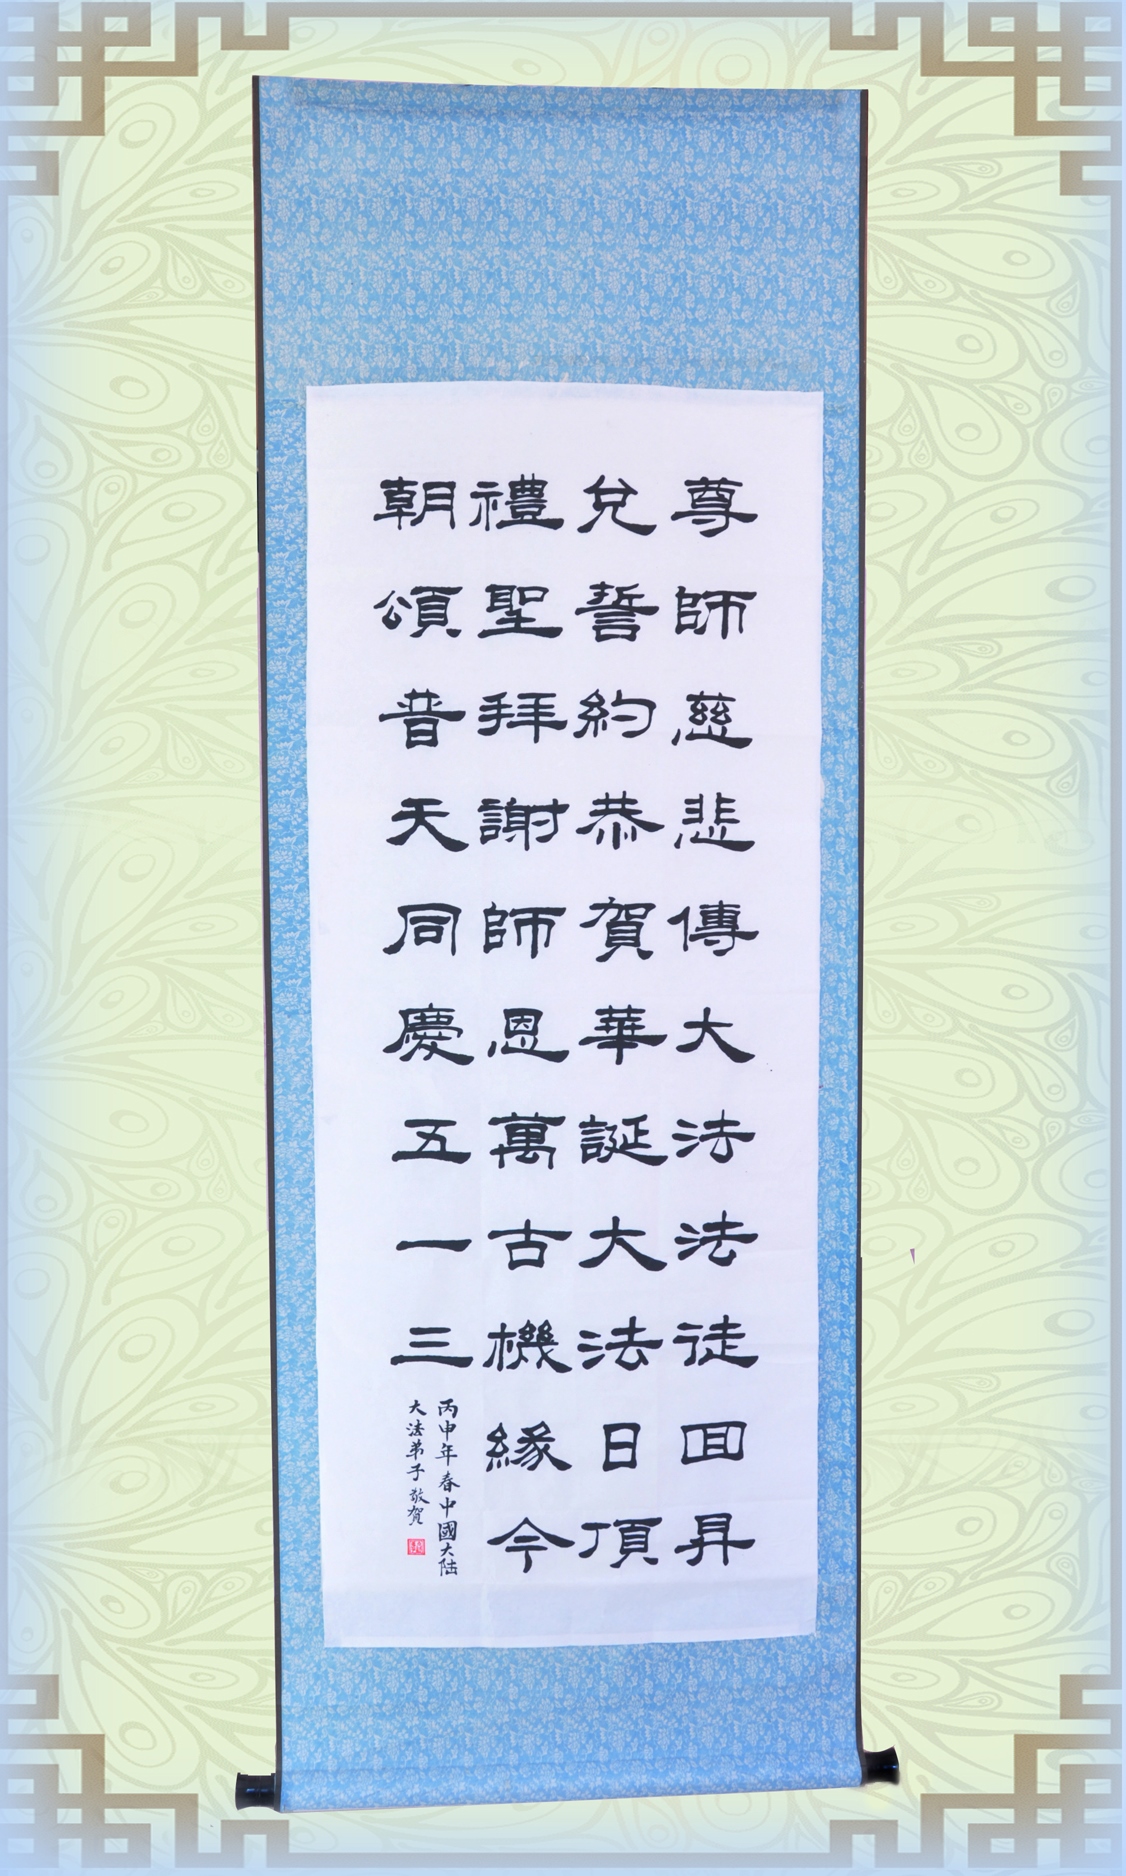 尊師慈悲傳大法法徒回昇
兌誓約恭賀華誕大法日頂
禮聖拜謝師恩萬古機緣今
朝頌普天同慶五一三
丙申年春中國大陆
大法弟子敬賀